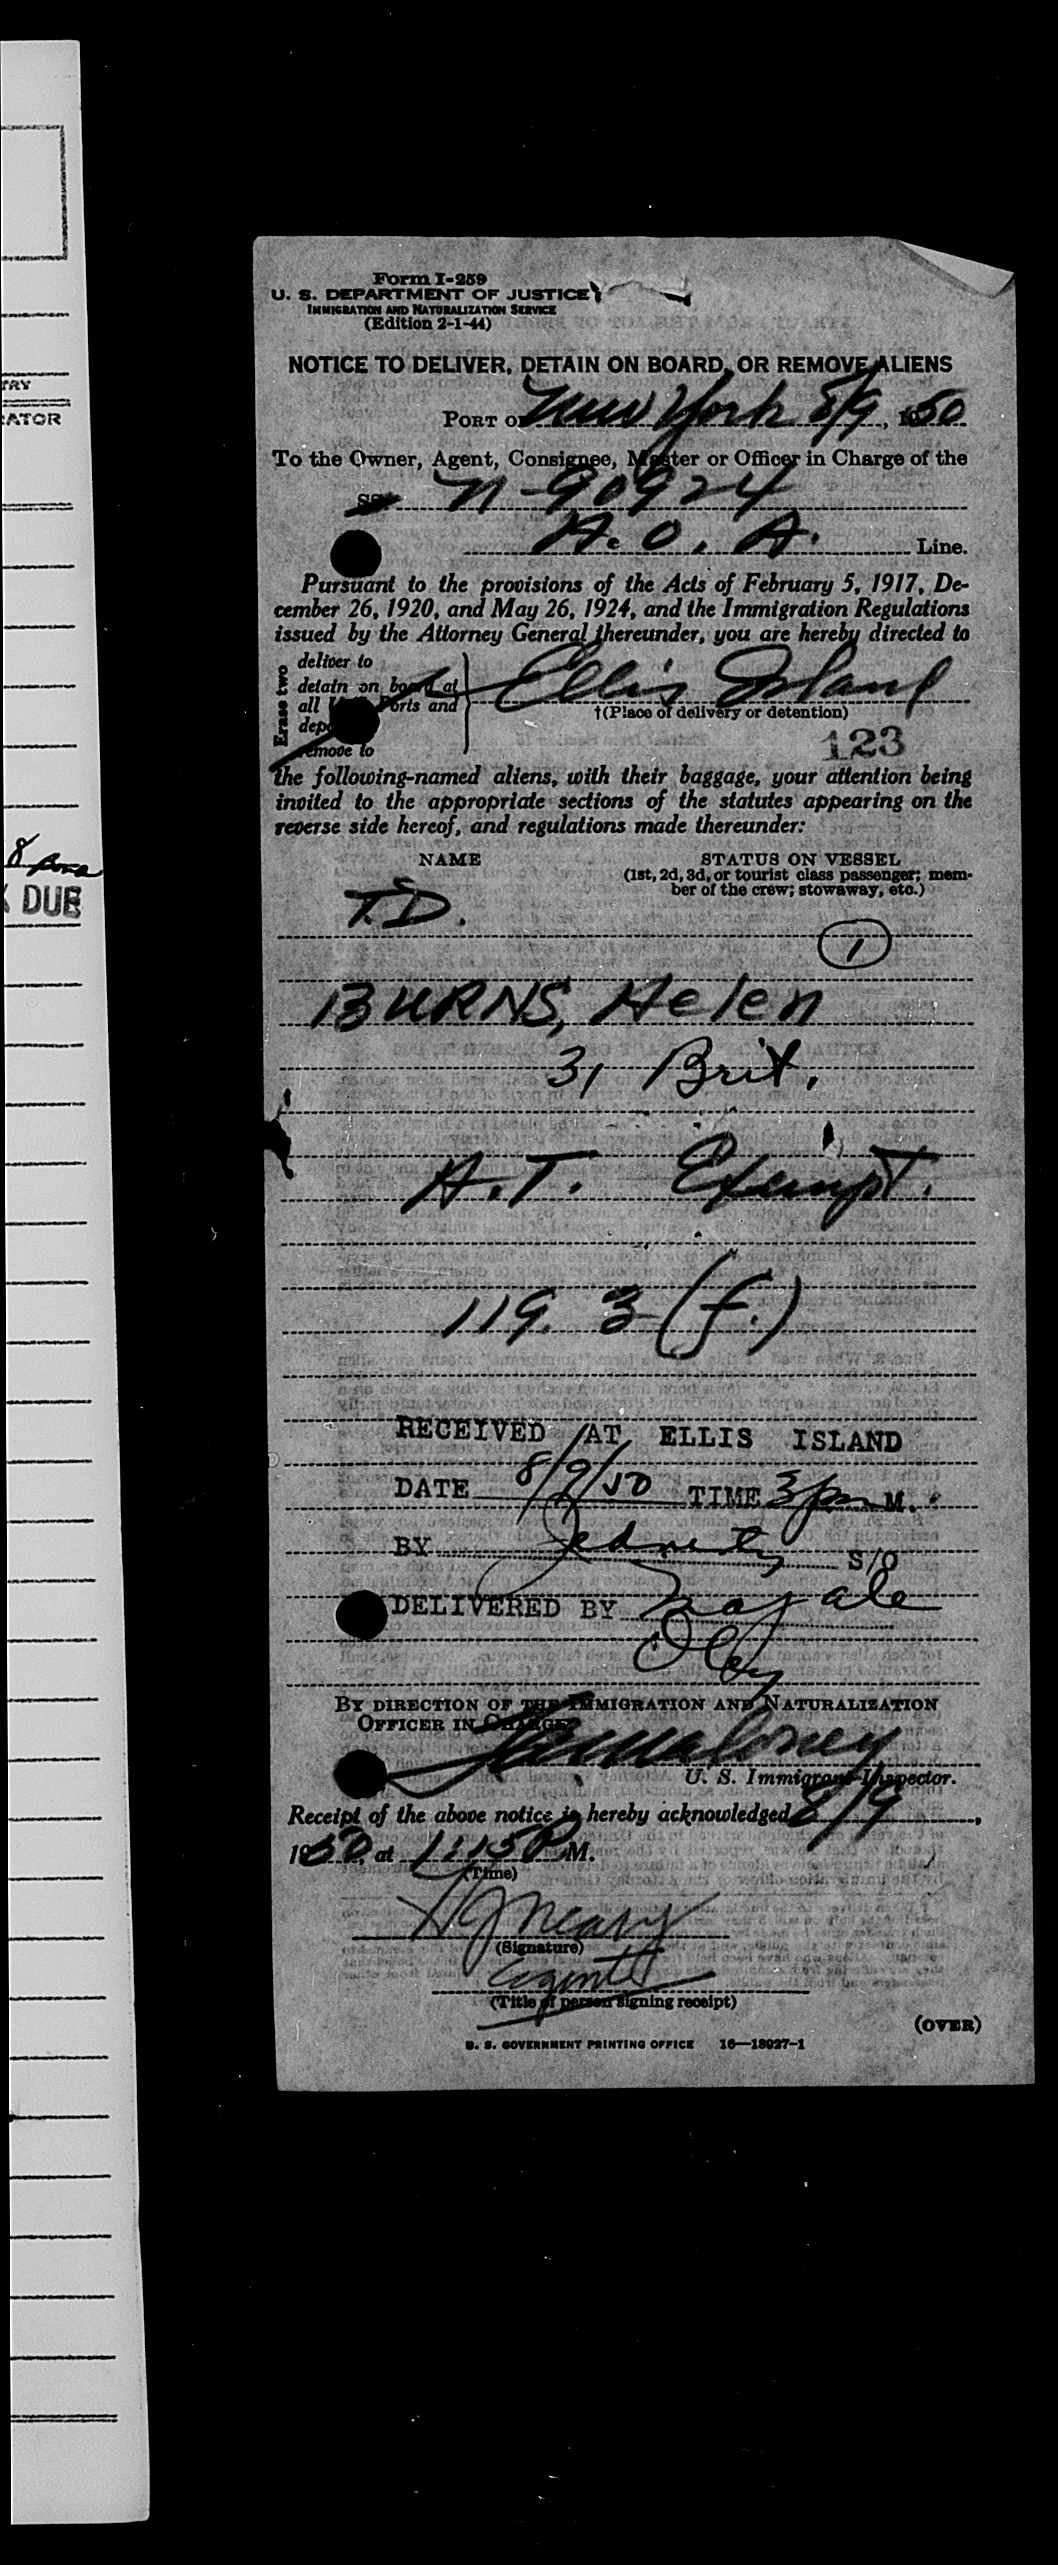 TRY
RATOR
8
DUE
Form I-259
U. S. DEPARTMENT OF JUSTICE
IMMIGRATION AND NATURALIZATION SERVICE
(Edition 2-1-44)
NOTICE TO DELIVER, DETAIN ON BOARD, OR REMOVE ALIENS
PORT OF New York 8/9, 1950
To the Owner, Agent, Consignee, Master or Officer in Charge of the
SS. N-90924
A. O. A. Line.
Pursuant to the provisions of the Acts of February 5, 1917, De-
cember 26, 1920, and May 26, 1924, and the Immigration Regulations
issued by the Attorney General thereunder, you are hereby directed to
Erase two
deliver to
detain on board at
all Ports and
remove to
Ellis Island
†(Place of delivery or detention)
123
the following-named aliens, with their baggage, your attention being
invited to the appropriate sections of the statutes appearing on the
reverse side hereof, and regulations made thereunder:
NAME STATUS ON VESSEL
(1st, 2d, 3d, or tourist class passenger; mem-
ber of the crew; stowaway, etc.)
T.D.
1
BURNS, Helen
31 Brit.
H.T. Exempt.
119. 3 (f.)
RECEIVED AT ELLIS ISLAND
DATE 8/9/50 TIME 3 pm M.
BY S/O
DELIVERED BY
BY DIRECTION OF THE IMMIGRATION AND NATURALIZATION
OFFICER IN CHARGE
U. S. Immigrant Inspector.
Receipt of the above notice is hereby acknowledged 8/9,
1950, at 1:15 P M.
(Time)
(Signature)
Agent
(Title of person signing receipt)
(OVER)
U. S. GOVERNMENT PRINTING OFFICE 16—18027-1